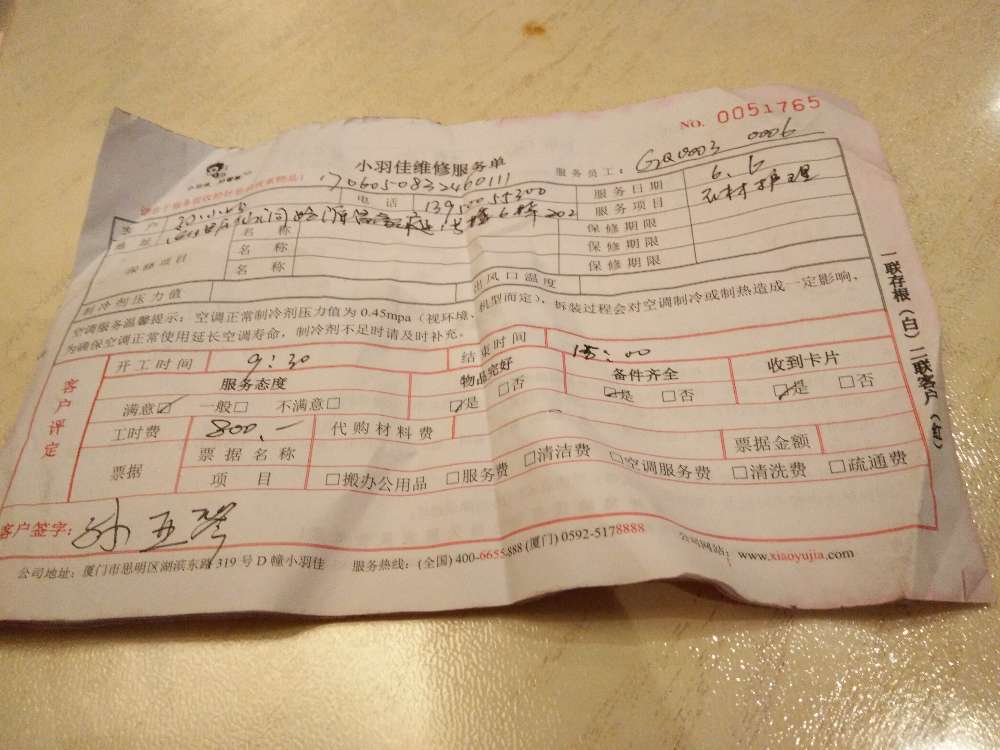 NO. 0051765
小羽佳维修服务单
服务员工: GQ0003 0006
170605083246 0111
客户 电话 13950055300 服务日期 6.6
地址 202 服务项目 石材护理
保修项目 名称 保修期限
名称 保修期限
名称 保修期限
制冷剂压力值 出风口温度
空调服务温馨提示:空调正常制冷剂压力值为0.45mpa(视环境、机型而定),拆装过程会对空调制冷或制热造成一定影响,
为确保空调正常使用延长空调寿命,制冷剂不足时请及时补充。
客户评定
开工时间 9:30 结束时间 15:00
服务态度 物品完好 备件齐全 收到卡片
满意☑ 一般□ 不满意□ ☑是 □否 ☑是 □否 ☑是 □否
工时费 800.— 代购材料费
票据 票据名称 票据金额
项目 □搬办公用品 □服务费 □清洁费 □空调服务费 □清洗费 □疏通费
客户签字: 孙亚琴
公司地址:厦门市思明区湖滨东路319号D幢小羽佳 服务热线:(全国)400-6655-888 (厦门) 0592-5178888 www.xiaoyujia.com
一联存根(白)二联客户(红)